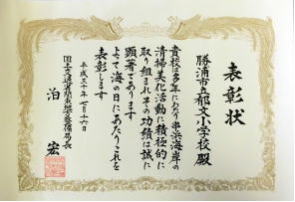 表彰状
勝浦市立郁文小学校殿
貴校は多年にわたり串浜海岸の
清掃美化活動に積極的に
取り組まれその功績は誠に
顕著であります
よって海の日にあたりこれを
表彰します
平成三十年七月十六日
国土交通省関東地方整備局長
泊 宏